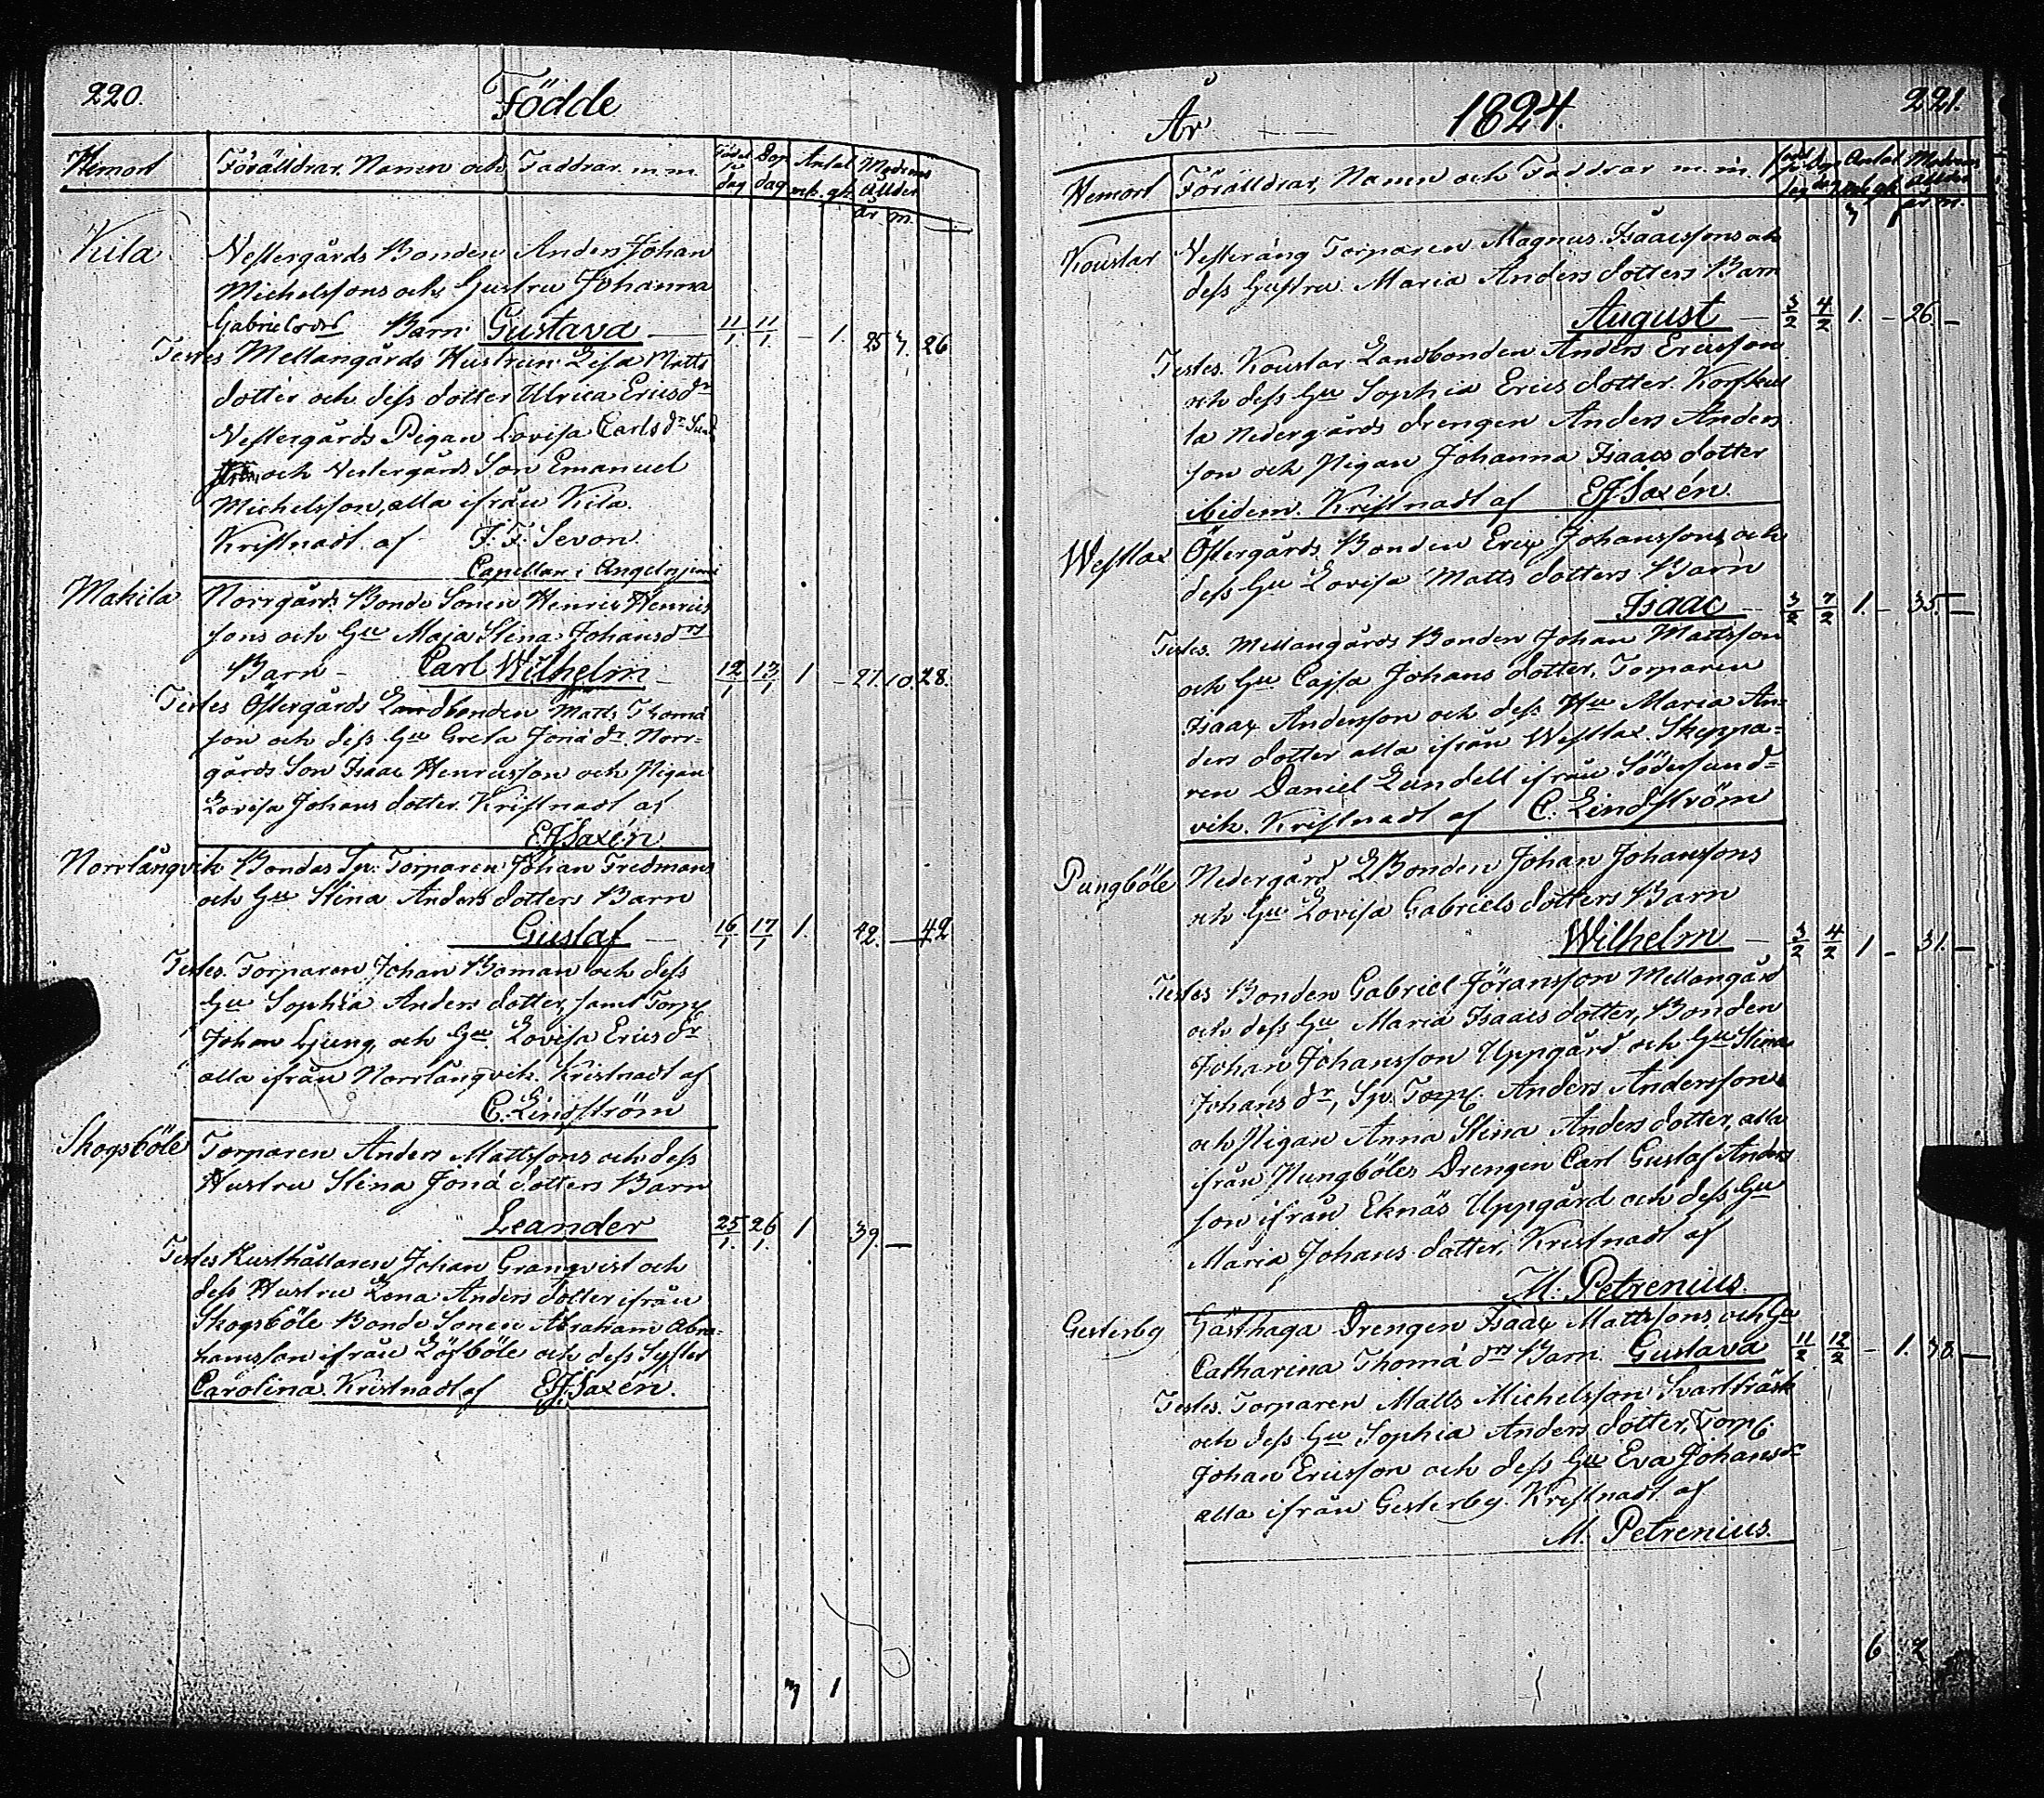 220.
Födde
Hemort Förälldrar, Namn och Faddrar. m.m. Födelsedag Dop dag Antal mk. qk. Modrens Ållder år m.
Kila Vestergårds Bonden Anders Johan
Michelssons och Hustru Johanna
Gabrielsdrs Barn Gustava — 11/1 11/1 – 1. 25 7. 26
Testes Mellangårds Hustrun Lisa Matts
dotter och dess dotter Ulrica Ericsdr
Vestergårds Pigan Lovisa Carlsdr
och Vestergårds Son Emanuel
Michelsson, alla ifrån Kila.
Kristnadt af F. F. Sevon
Capellan i Angelnjemi
Makila Norrgårds Bonde Sonen Henric Henrics
sons och Hu Maja Stina Johansdrs
Barn – Carl Wilhelm – 12/1 13/1 1 – 27. 10. 28.
Testes Östergårds Landbonden Matts Thomä
son och dess Hu Greta Jonädr. Norr-
gårds Son Isaac Henricsson och Pigan
Lovisa Johans dotter. Kristnadt af
EJSaxén.
Norrlångvik Bondas Sp. Torparen Johan Fredmans
och Hu Stina Anders dotters Barn
Gustaf — 16/1 17/1 1. 42. — 42
Testes. Torparen Johan Boman och dess
Hu Sophia Anders dotter, samt Torp.
Johan Ljung, och Hu Lovisa Ericsdr
alla ifrån Norrlångvik. Kristnadt af
C. Lindström
Skogsböle Torparen Anders Mattssons och dess
Hustru Stina Jonä dotters Barn
Leander 25/1. 26/1. 1 39. —
Testes Rusthållaren Johan Granqvist och
dess Hustru Lena Anders dotter ifrån
Skogsböle Bonde Sonen Abraham Abra-
hamsson ifrån Löfböle och dess Syster
Carolina. Kristnadt af EJSaxén.
7 1
År 1824. 221.
Hemort Förälldrar, Namn och Faddrar m.m. född dag Dop dag Antal mk qk Modrens Ållder år m.
7 1
Koustar Vesteräng Torparen Magnus Isaacssons och
dess Hustru Maria Anders dotters Barn
August — 3/2 4/2 1. – 26. –
Testes. Koustar Landbonden Anders Ericsson
och dess Hu Sophia Erics dotter.
la Nedergårds drengen Anders Anders
son och Pigan Johanna Isaacs dotter
ibidem. Kristnadt af EJSaxén.
Westlax Östergårds Bonden Eric Johanssons och
dess Hu Lovisa Matts dotters Barn
Isaac — 3/2 7/2 1. – 35. –
Testes. Mellangårds Bonden Johan Mattsson
och Hu Cajsa Johans dotter, Torparen
Isaac Andersson och dess Hu Maria An-
ders dotter alla ifrån Westlax. Skeppa-
ren Daniel Lundell ifrån Södersund-
vik. Kristnadt af C. Lindström
Pungböle Nedergård LBonden Johan Johanssons
och Hu Lovisa Gabriels dotters Barn
Wilhelm — 3/2 4/2 1 – 31. –
Testes Bonden Gabriel Jöransson Mellangård
och dess Hu Maria Isaacs dotter, Bonden
Johan Johansson Uppgård och Hu Stina
Johans dr, Sp. Torp. Anders Andersson
och Pigan Anna Stina Anders dotter, alla
ifrån Pungböle Drengen Carl Gustaf Anders
son ifrån Eknäs Uppgård och dess Hu
Maria Johans dotter, Kristnadt af
M. Petrenius.
Gesterby Gästhaga Drengen Isaac Mattssons och Hu
Catharina Thomä drs Barn. Gustava 11/2 12/2 – 1. 38. —
Testes. Torparen Matts Michelsson Svartträsk
och dess Hu Sophia Anders dotter, Torp.
Johan Ericsson och dess Hu Eva Johansdr
alla ifrån Gesterby. Kristnadt af
M. Petrenius.
6 2